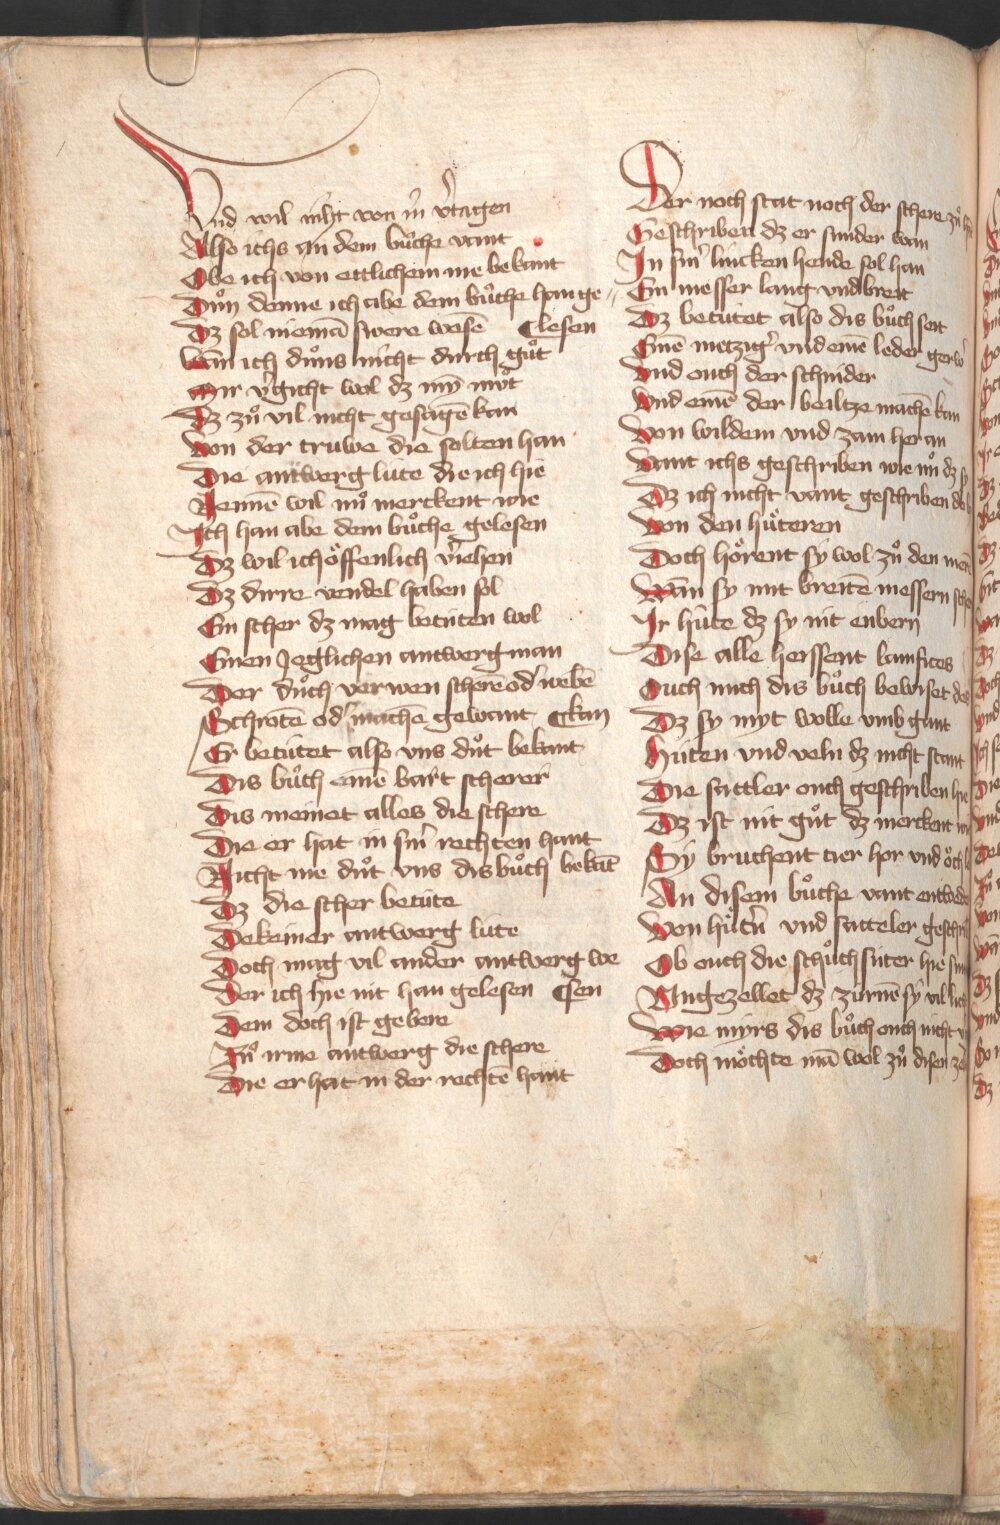 Und wil niht von in v̓tagen
Also ichs an dem buͦche vant
Obe ich von ettlichem me bekant
Duͦn denne ich abe dem buͦche han ge-
Dz sol niemā swere wesē ¶ lesen
Wān ich duͦns nicht durch guͦt
Mir v̓gicht wol dz mȳ muͦt
Dz zuͦ vil nicht gesagē kan
Von der truwe die solten han
Die antwerg lúte die ich hie
Nennē wil nuͦ merckent wie
Ich han abe dem buͦche gelesen
Dz wil ich öffenlich v̓iehen
Dz dirre vendel haben sol
Ein scher dz mag betúten wol
Einen Jeglichen antwerg man
Der duͦch verwen scherē od̓ webē
Schrotē od̓ machē gewant ¶ kan
Er betútet also vns duͦt bekant
Dis buͦch einē bart scherer
Dis meinet alles die schere
Die er hat in sin̓ rechten hant
Nicht me duͦt vns dis buͦch bekāt
Dz die scher betúte
Dekeiner antwerg lúte
Doch mag vil ander antwerg we
Der ich hie nit han gelesen ¶ sen
Dem doch ist gebere
Zuͦ irme antwerg die schere
Die er hat in der rechtē hant
Der noch stat noch der schere zuͦ
Geschriben dz er sunder wan
In sin̓ lincken hende sol han
Ein messer lang vnd breit
Dz betútet also dis buͦch seit
Einē metzig̓ vnd einē leder gerw̓
Vnd ouch der schinder
Vnd einē der beiltze machē kan
Von wildem vnd zam her an
Vant ichs geschriben wie nuͦ dz sy
Dz ich nicht vant geschriben do
Von den huͤteren
Doch hoͤrent sy wol zuͦ den
Wān sy mit breitē messern
Ir húte dz sy nit enbern
Dise alle heissent lanifices
Ouch mich dis buͦch bewiset des
Dz sy myt wolle vmb gant
Húten vnd veln dz nicht stant
Die sattler ouch geschriben hie
Dz ist nit guͦt dz merckent wie
Sy bruchent tier hor vnd öch
An disem buͦche vant entwed
Von huͤtn̓ vnd satteler geschri
Ob ouch die schuͦchsúter hie
Ungezellet dz zúrnē sy vil
Wie mirs dis buͦch ouch nicht
Doch moͤchte mā wol zuͦ disen